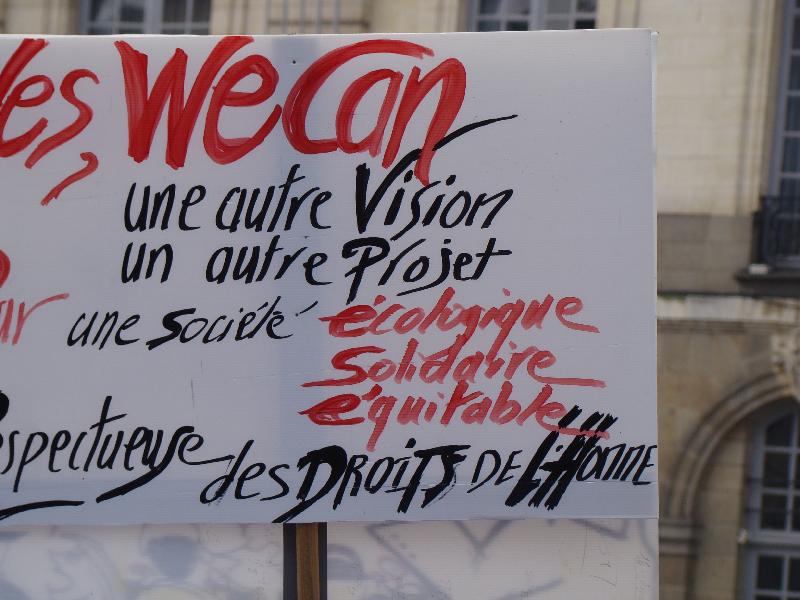 es, We Can
une autre Vision
un autre Projet
une Société écologique
Solidaire
équitable
spectueuse des DROiTS DE L'HOMME